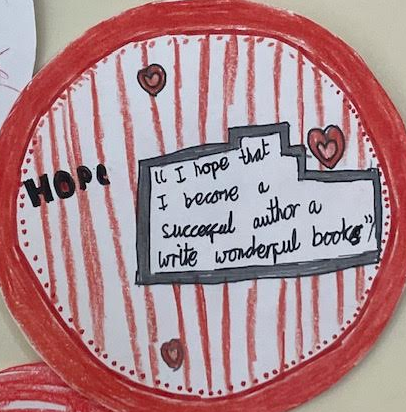 HOPE
“I hope that
I become a
succesful author a
write wonderful books”